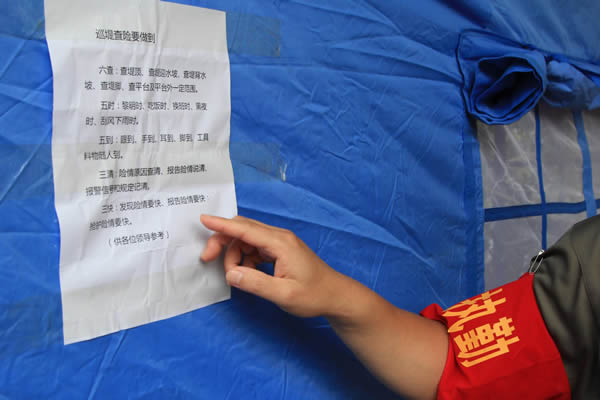 巡堤查险要做到
六查：查堤顶、查堤迎水坡、查堤背水
坡、查堤脚、查平台及平台外一定范围。
五时：黎明时、吃饭时、换班时、黑夜
时、刮风下雨时。
五到：眼到、手到、耳到、脚到、工具
料物随人到。
三清：险情原因查清、报告险情说清、
报警信号和规定记清。
三快：发现险情要快、报告险情要快、
抢护险情要快。
（供各位领导参考）
执勤